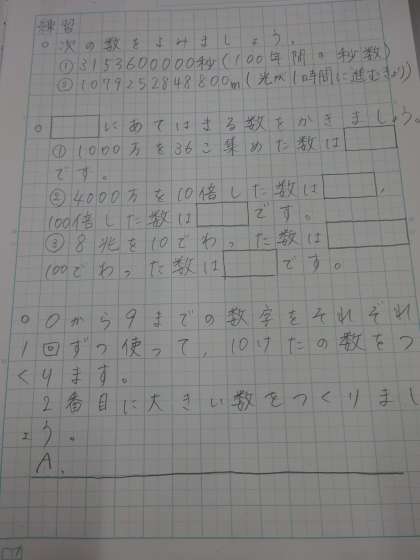 練習
○次の数をよみましょう。
①3153600000秒(100年間の秒数)
②1079252848800m(光が1時間に進むきょり)
○□にあてはまる数をかきましょう。
①1000万を36こ集めた数は□
です。
②4000万を10倍した数は□,
100倍した数は□です。
③8兆を10でわった数は□
100でわった数は□です。
○0から9までの数字をそれぞれ
1回ずつ使って,10けたの数をつ
くります。
2番目に大きい数をつくりまし
ょう。
A.